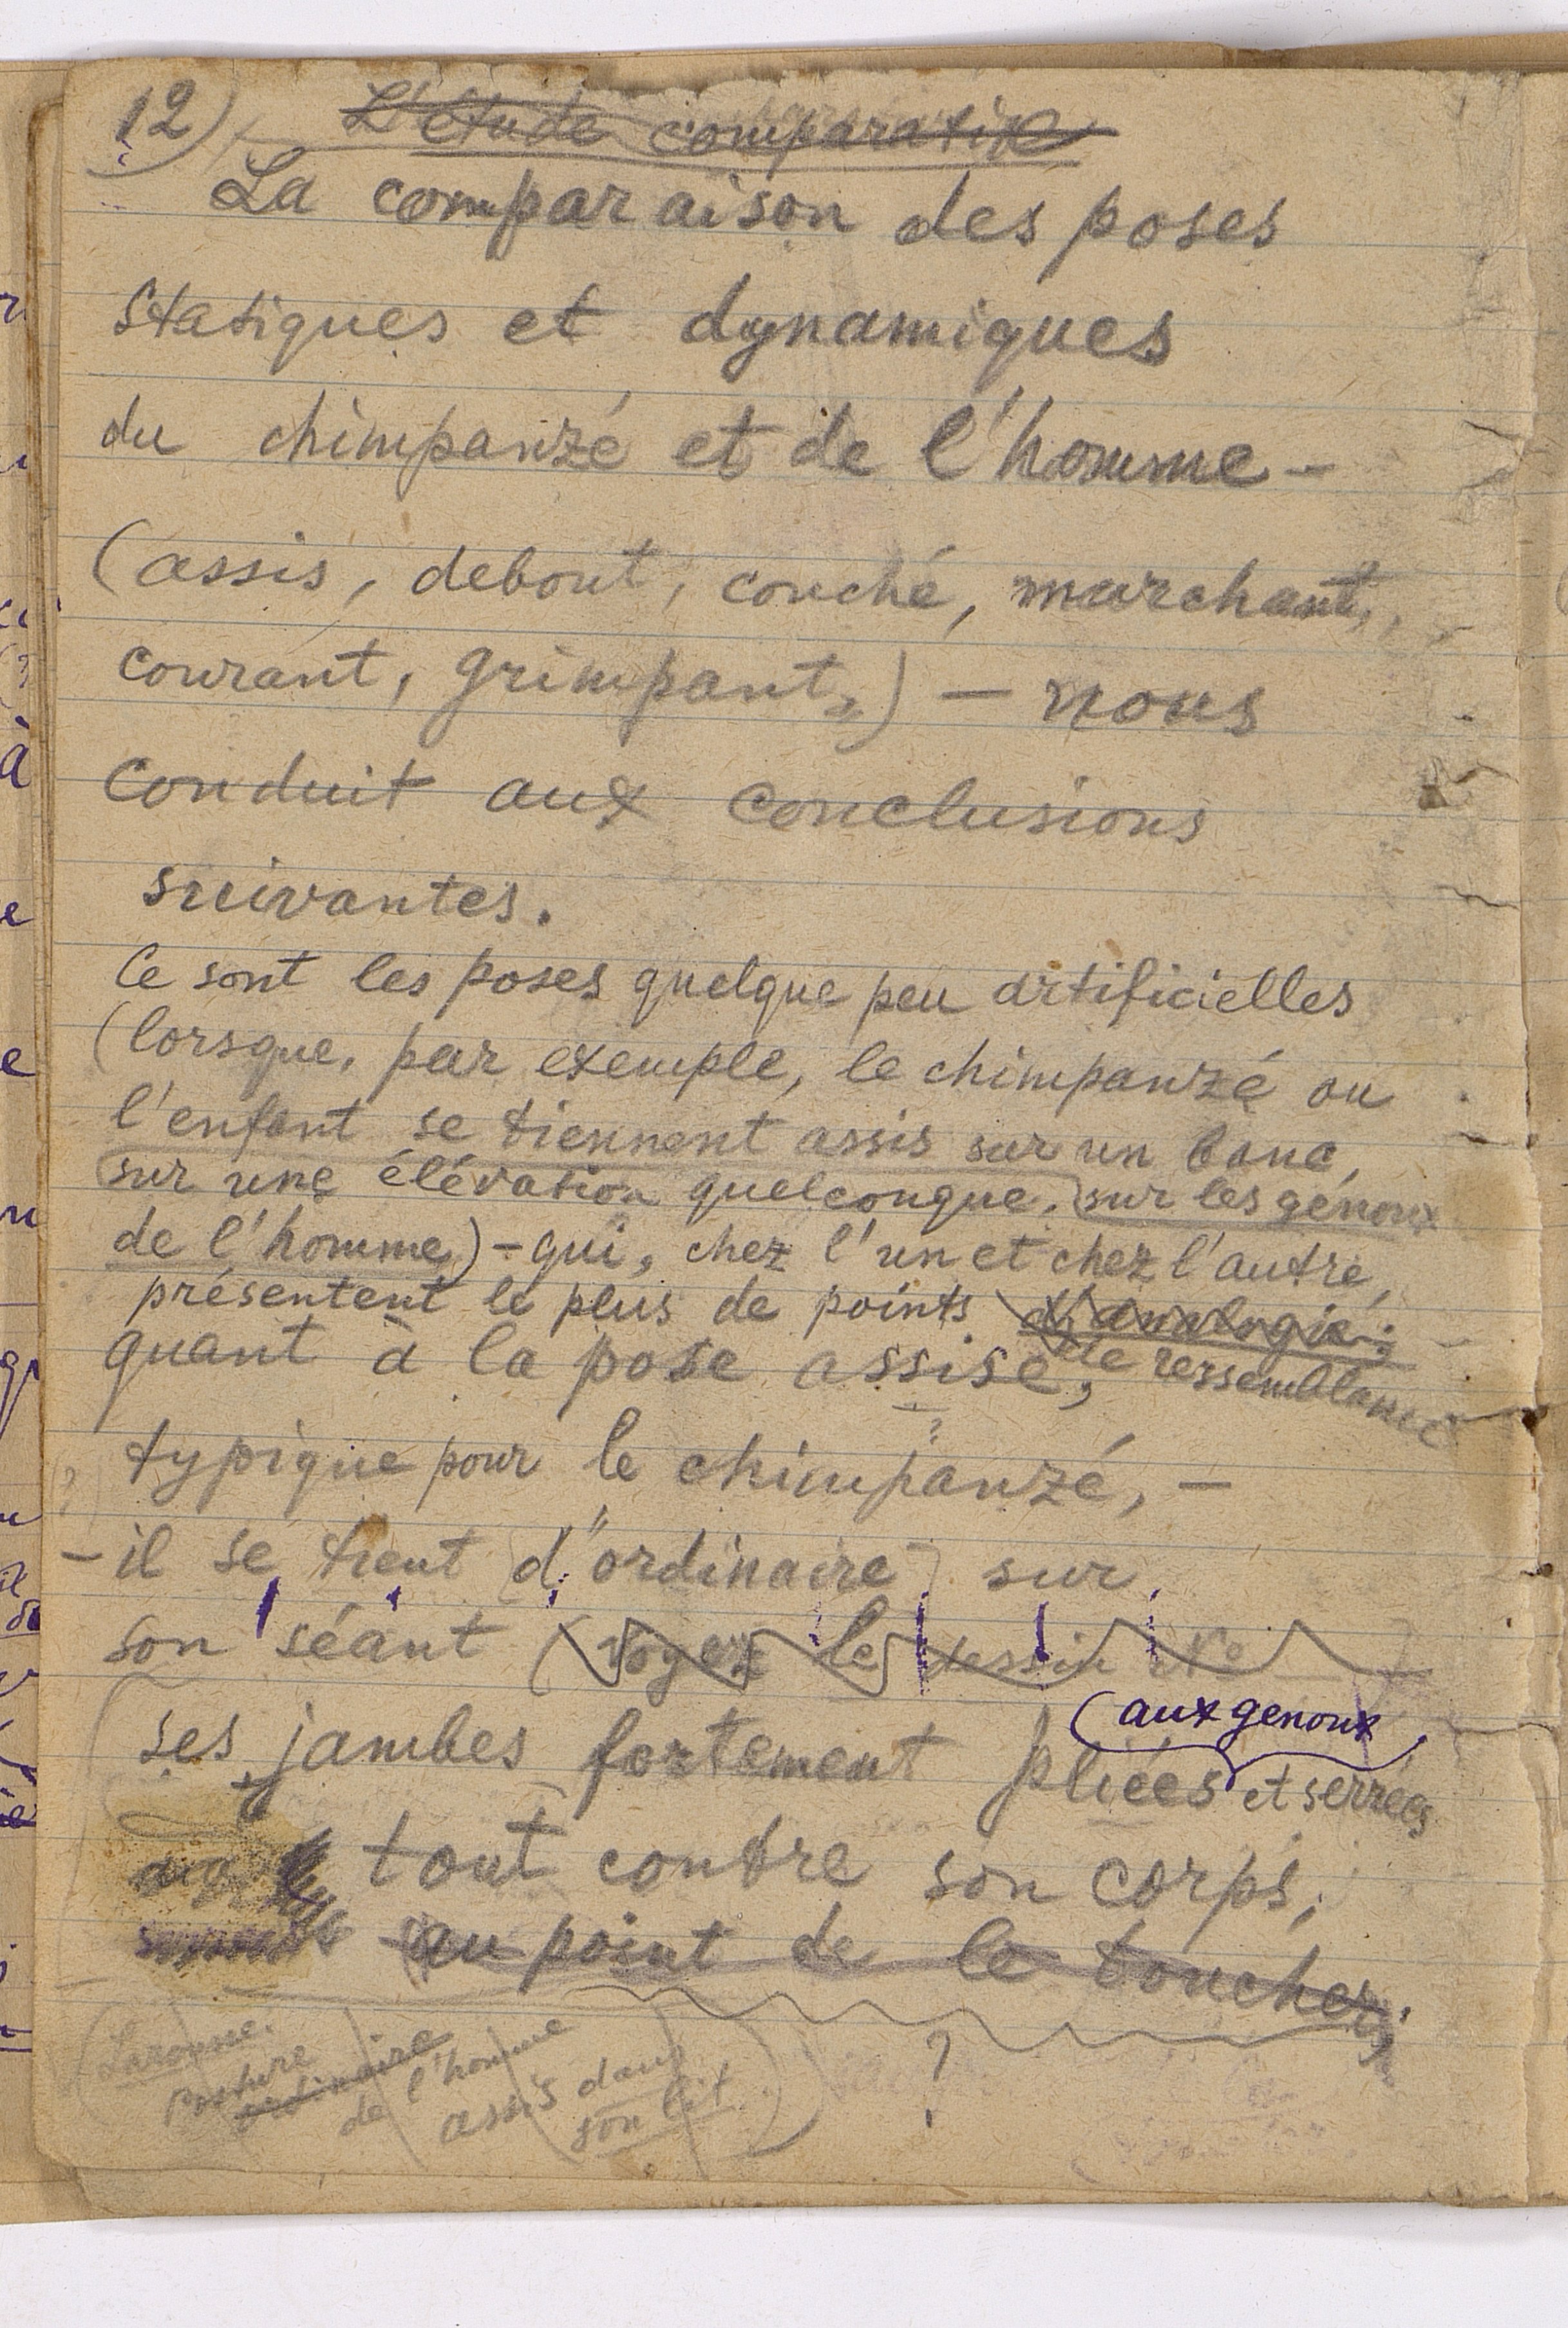 12) L'étude comparative
La comparaison des poses
statiques et dynamiques
du chimpanzé et de l'homme -
(assis, debout, couché, marchant,
courant, grimpant,) - nous
conduit aux conclusions
suivantes.
Ce sont les poses quelque peu artificielles
(lorsque, par exemple, le chimpanzé ou
l'enfant se tiennent assis sur un banc,
sur une élévation quelconque, sur les génoux
de l'homme) - qui, chez l'un et chez l'autre,
présentent le plus de points d'analogie;
de ressemblance
quant à la pose assise,
?
typique pour le chimpanzé, -
- il se tient d'"ordinaire" sur
son séant (Voyez le dessin No )
(aux genoux)
ses jambes fortement pliées et serrées
tout contre son corps,
au point de le toucher;
(Larousse.
Posture
ordinaire
de l'homme
assis dans
son lit.)
?